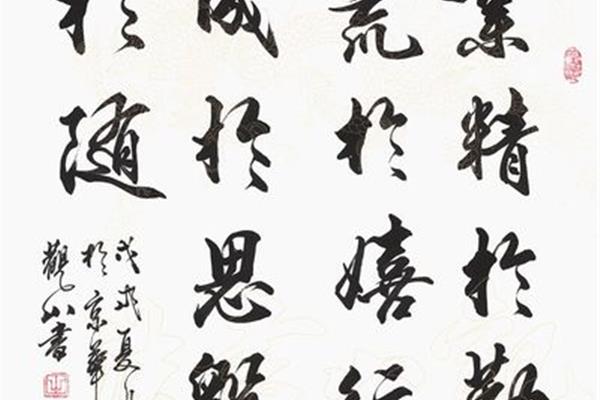 業精於勤
荒於嬉行
成於思毁
於随
戊戌夏月
於京華
觀山書